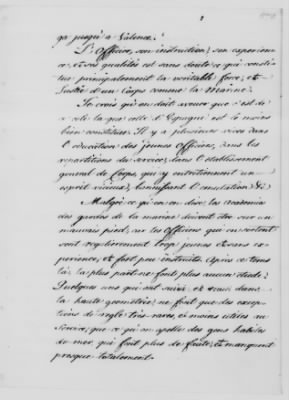 2
ça jusqu'à Valence.
L'Officier, son instruction, son experien-
ce, et ses qualités est sans doute ce qui consti-
tue principalement la veritable force, et
lustre d'un Corps comme la Marine.
Je crois qu'on doit avouer que c'est de
ce côté la que celle d'Espagne est le moins
bien constituée. Il y a plusieurs vices dans
l'education des jeunes Officiers, dans les
repartitions du service, dans l'etablissement
general du Corps, que y entretiennent un
esprit vicieux, bannissant l'emulation &c.
Malgré ce qu'on en dise, les academies
des gardes de la marine doivent être sur un
mauvais pied, car les Officiers qui en sortent
sont regulierement trop jeunes et sans ex-
perience, et fort peu instruits. Après ce tems
là, la plus part ne font plus aucun etude.
Quelques uns qui ont suivi et reussi dans
la haute geometrie, ne font que des excep-
tions de regle très-rares, et moins utiles au
Service, que ce qu'on apelle des gens habiles
de mer, qui font plus de faute, et manquent
presque totalement.